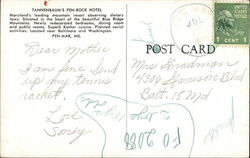 TANNENBAUM'S PEN-ROCK HOTEL
Maryland's leading mountain resort observing dietary
laws. Situated in the heart of the beautiful Blue Ridge
Mountains. Newly redecorated bedrooms, dining room
and public rooms. Superb Kosher cuisine. Planned social
activities. Located near Baltimore and Washington.
PEN-MAR, MD.
POST CARD
Dear Mother
I am fine. Send
up my tennis
racket.
Love
Sonny
Mrs
4306 Garrison Blvd
Balt. 15 Md
FO 2088